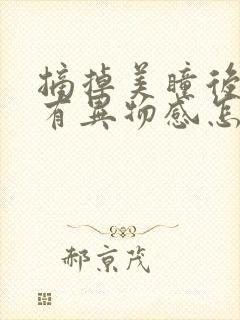 摘掉美瞳後
有異物感怎
郝京茂